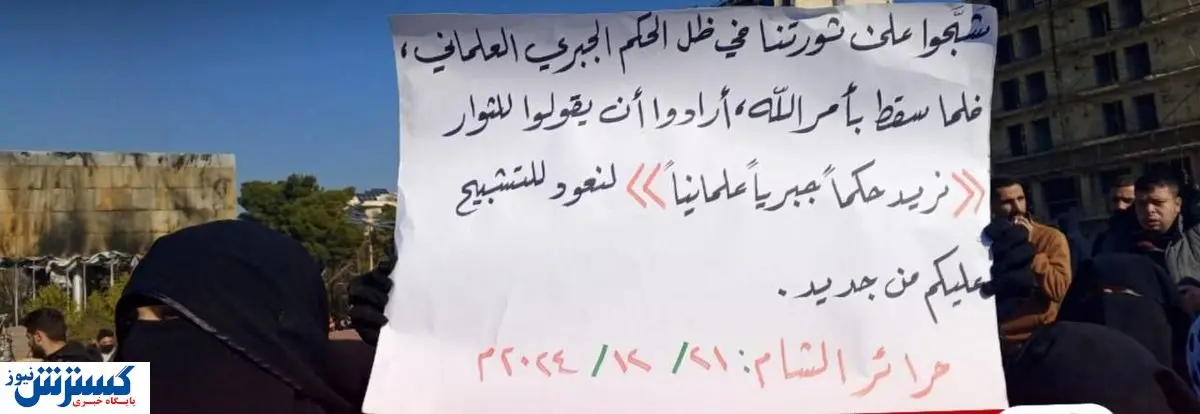 شَبَّحوا على ثورتنا في ظل الحكم الجبري العلماني،
فلما سقط بأمر الله، أرادوا أن يقولوا للثوار
《نريد حكماً جبرياً علمانياً》 لنعود للتشبيح
عليكم من جديد.
حرائر الشام: ٢١/ ١٢/ ٢٠٢٤م
گسترش نیوز
پایگاه خبری